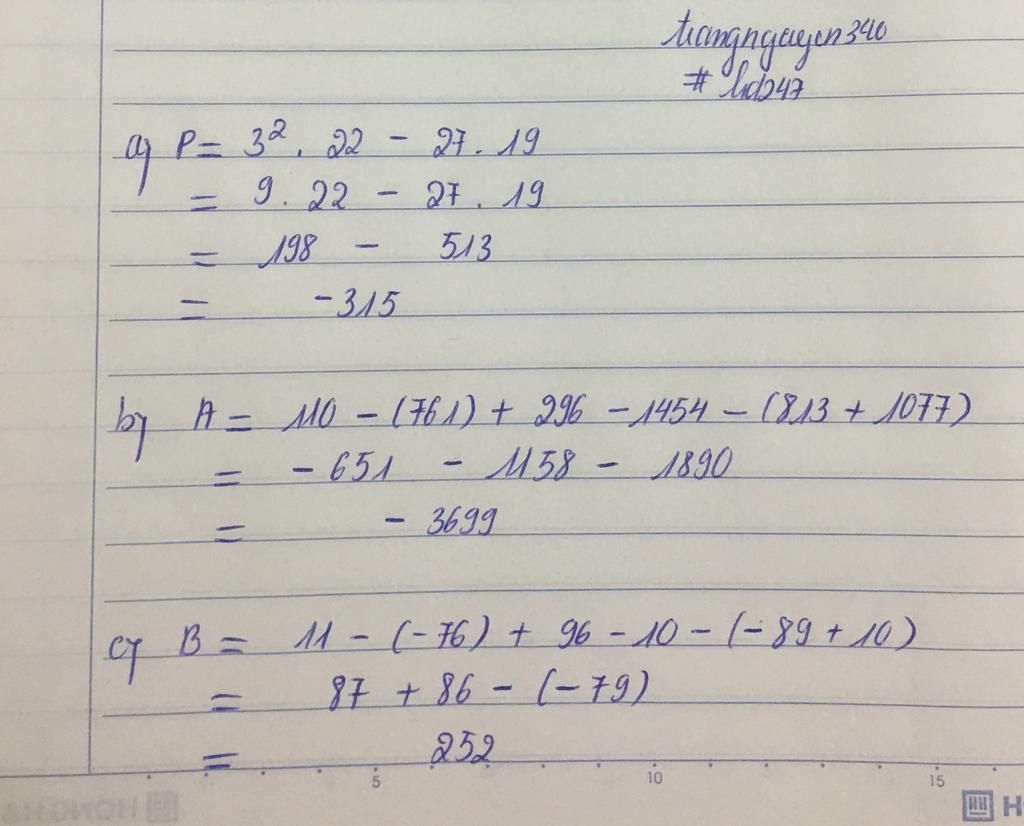 trangnguyen340
# hd247
a) P = 3². 22 - 27. 19
= 9. 22 - 27. 19
= 198 - 513
= -315
b) A = 110 - (761) + 296 - 1454 - (813 + 1077)
= - 651 - 1158 - 1890
= - 3699
c) B = 11 - (-76) + 96 - 10 - (-89 + 10)
= 87 + 86 - (-79)
= 252
5 10 15